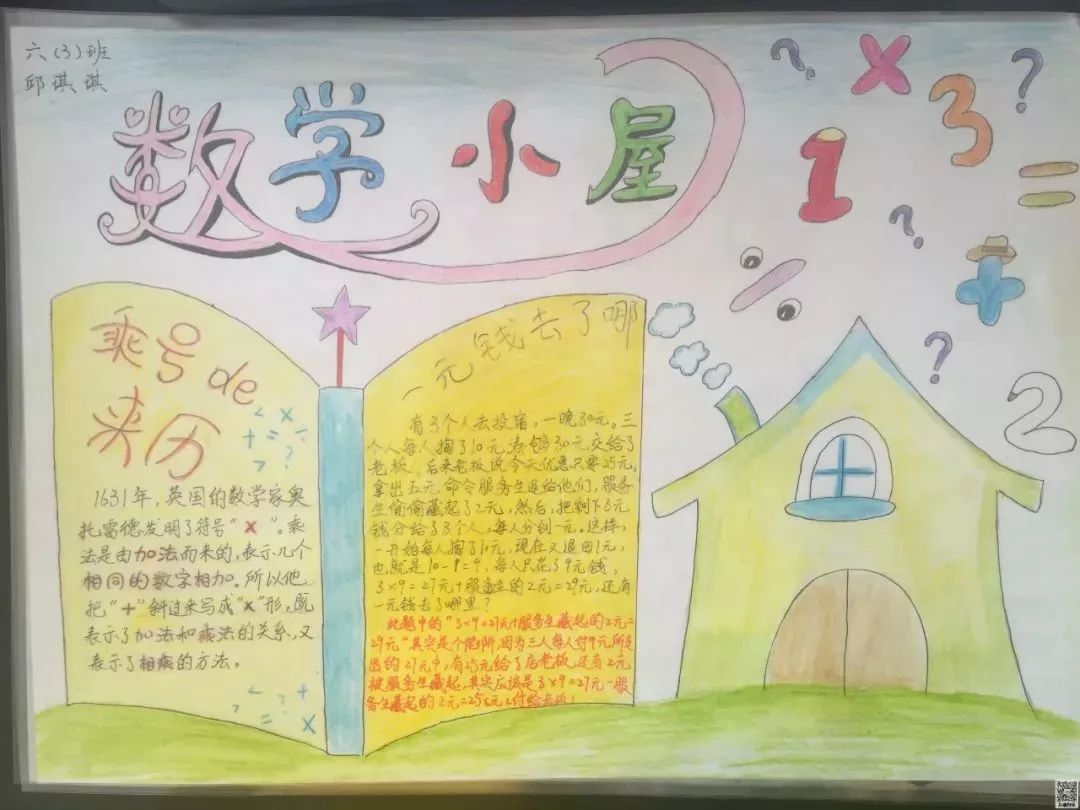 六(3)班
邱琪琪
数学小屋
乘号de
来历
1631年,英国的数学家奥
托雷德发明了符号“×”。乘
法是由加法而来的,表示几个
相同的数字相加。所以他
把“+”斜过来写成“×”形,既
表示了加法和乘法的关系,又
表示了相乘的方法。
一元钱去了哪
有3个人去投宿,一晚30元。三
个人每人掏了10元凑够30元交给了
老板。后来老板说今天优惠只要25元,
拿出五元命令服务生退给他们,服务
生偷偷藏起了2元,然后,把剩下3元
钱分给了3个人,每人分到一元。这样,
一开始每人掏了10元,现在又退回1元,
也就是10-1=9,每人只花了9元钱,
3×9=27元+服务生的2元=29元,还有
一元钱去了哪里?
此题中的“3×9=27元+服务生藏起的2元=
29元”其实是个陷阱,因为三人每人付9元,所支
出的27元中,有25元给了店老板,还有2元
被服务生藏起,其实应该是3×9=27元-服
务生藏起的2元=25元(付给老板)
? × 3 ?
1 =
?
÷ +
?
2